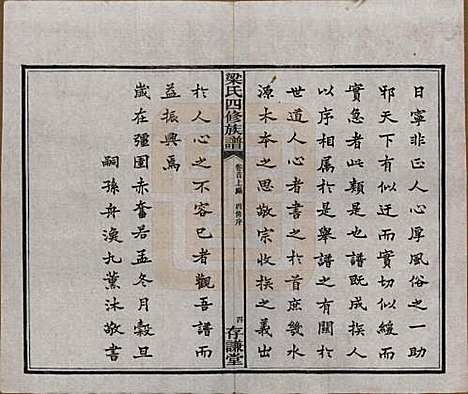 日寧非正人心厚風俗之一助
邪天下有似迂而實切似緩而
實急者此類是也譜既成族人
以序相屬於是舉譜之有關於
世道人心者書之於首庶幾水
源木本之思敬宗收族之義出
梁氏四修族譜
卷首上編
四修序
四
存謙堂
於人心之不容已者觀吾譜而
益振興焉
歲在彊圉赤奮若孟冬月穀旦
嗣孫舟漁九薰沐敬書